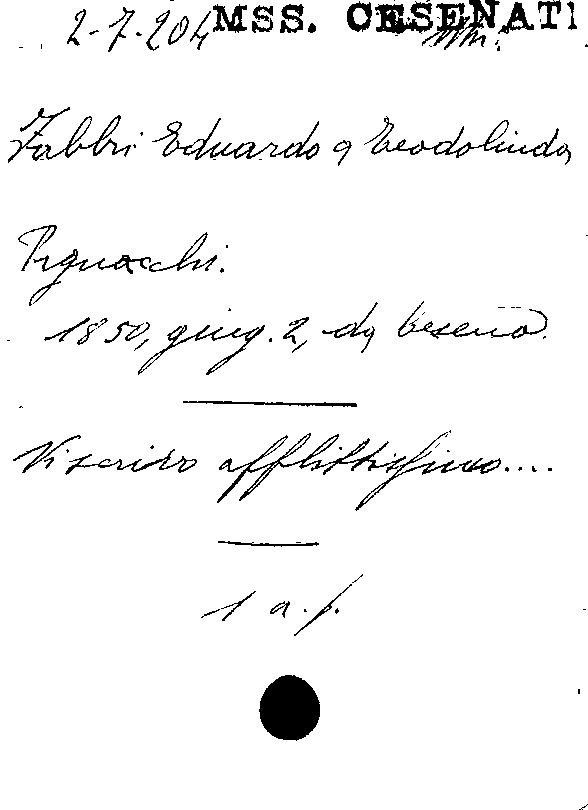 2-7-204 MSS. CESENATI
Fabbri Eduardo a Teodolinda
Pignocchi.
1850, giug. 2, da Cesena.
Vi scrivo afflittissimo....
1 a.f.